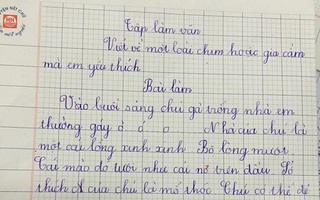 Tập làm văn
Viết về một loài chim hoặc gia cầm
mà em yêu thích
Bài làm
Vào buổi sáng chú gà trống nhà em
thường gáy ò ó o Nhà của chú là
một cái lồng xinh xinh Bộ lông mượt
Cái mào đỏ tươi như cái nơ trên đầu Sở
thích của chú là mổ thóc Chú có thể để